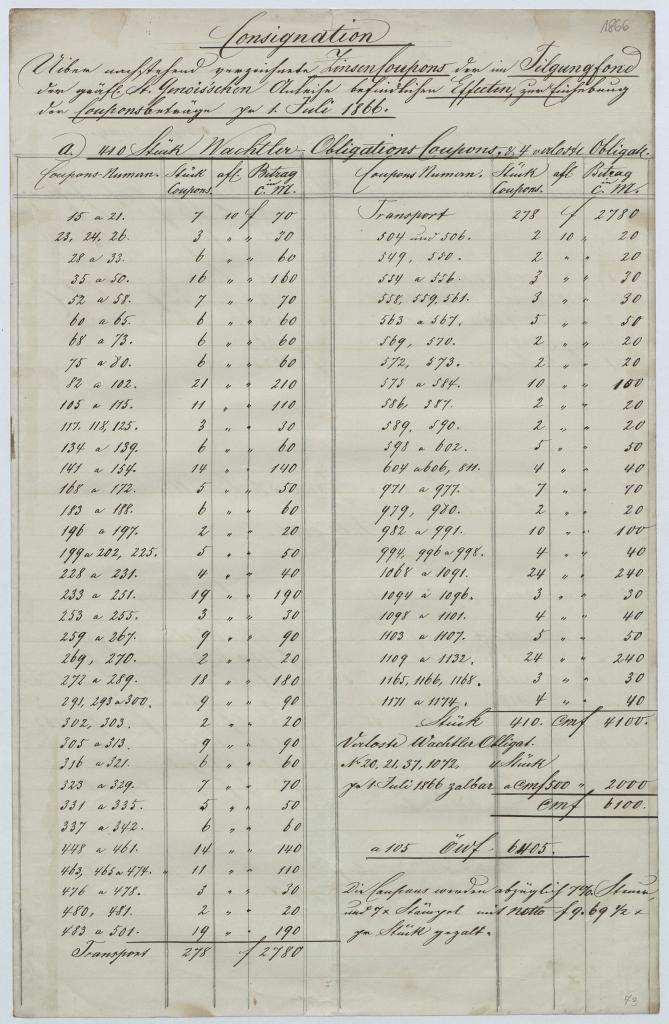 1866
Consignation
Uiber nachstehend verzeichnete Zinsen Coupons der im Tilgungfond
der gräfl. St. Genoisschen Anleihe befindlichen Effecten, zur Einhebung
der Couponsbeträge pr 1. Juli 1866.
a.) 410 Stück Wachtler- Obligations Coupons. & 4 verloste Obligat.
Coupons-Numern. Stück Coupons. afl. Betrag in C. M.
15 a 21. 7 10 f 70
23, 24, 26. 3 " " 30
28 a 33. 6 " " 60
35 a 50. 16 " " 160
52 a 58. 7 " " 70
60 a 65. 6 " " 60
68 a 73. 6 " " 60
75 a 80. 6 " " 60
82 a 102. 21 " " 210
105 a 115. 11 " " 110
117. 118, 125. 3 " " 30
134 a 139. 6 " " 60
141 a 154. 14 " " 140
168 a 172. 5 " " 50
183 a 188. 6 " " 60
196 a 197. 2 " " 20
199 a 202, 225. 5 " " 50
228 a 231. 4 " " 40
233 a 251. 19 " " 190
253 a 255. 3 " " 30
259 a 267. 9 " " 90
269, 270. 2 " " 20
272 a 289. 18 " " 180
291, 293 a 300. 9 " " 90
302, 303. 2 " " 20
305 a 313. 9 " " 90
316 a 321. 6 " " 60
323 a 329. 7 " " 70
331 a 335. 5 " " 50
337 a 342. 6 " " 60
448 a 461. 14 " " 140
463, 465 a 474. 11 " " 110
476 a 478. 3 " " 30
480, 481. 2 " " 20
483 a 501. 19 " " 190
Transport 278 f 2780
Coupons Numern. Stück Coupons. afl Betrag in C. M.
Transport 278 f 2780
504 und 506. 2 10 " 20
549, 550. 2 " " 20
554 a 556. 3 " " 30
558, 559, 561. 3 " " 30
563 a 567. 5 " " 50
569, 570. 2 " " 20
572, 573. 2 " " 20
575 a 584. 10 " " 100
586, 587. 2 " " 20
589, 590. 2 " " 20
598 a 602. 5 " " 50
604 a 606, 811. 4 " " 40
971 a 977. 7 " " 70
979, 980. 2 " " 20
982 a 991. 10 " " 100
994, 996 a 998. 4 " " 40
1068 a 1091. 24 " " 240
1094 a 1096. 3 " " 30
1098 a 1101. 4 " " 40
1103 a 1107. 5 " " 50
1109 a 1132. 24 " " 240
1165, 1166, 1168. 3 " " 30
1171 a 1174. 4 " " 40
Stück 410. Cmf 4100.
Verloste Wachtler Obligat.
No 20, 21, 37, 1072, 4 Stück
pr 1. Juli 1866 zalbar a Cmf 500 " 2000
Cmf 6100.
a 105 Öwf. 6405.
Die Coupons werden abzüglich 7% Steuer,
und 7x Stämpel mit Netto f 9. 69 1/2 x
pr Stück gezalt.
73